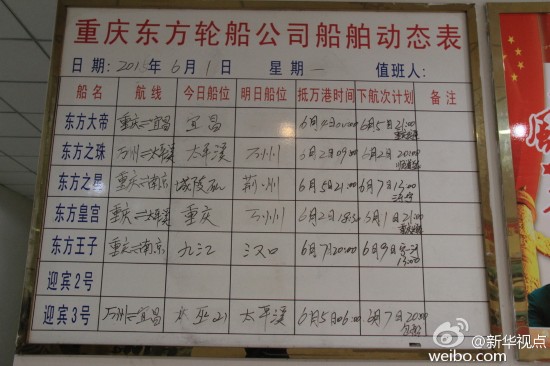 重庆东方轮船公司船舶动态表
日期：2015年6月1日 星期一 值班人：
船名 航线 今日船位 明日船位 抵万港时间 下航次计划 备注
东方大帝 重庆=宜昌 宜昌 6月5日21:00
东方之珠 万州=太平溪 太平溪 万州 6月2日09:00 6月2日20:00
东方之星 重庆=南京 城陵矶 荆州 6月5日21:00 6月7日13:00
东方皇宫 重庆=太平溪 重庆 万州 6月2日 6月1日21:00
东方王子 重庆=南京 九江 汉口 6月7日20:00 6月9日 13:00
迎宾2号
迎宾3号 万州=宜昌 太平溪 6月5日06:00 6月7日20:00
@新华视点
weibo.com